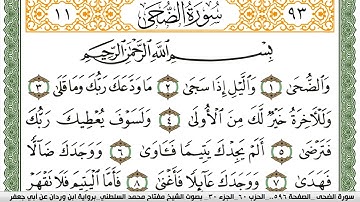 ٩٣ سُورَةُ الضُّحَى ١١
بِسْمِ اللَّهِ الرَّحْمَٰنِ الرَّحِيمِ
وَالضُّحَىٰ ١ وَالَّيْلِ إِذَا سَجَىٰ ٢ مَا وَدَّعَكَ رَبُّكَ وَمَا قَلَىٰ ٣
وَلَلْأَخِرَةُ خَيْرٌ لَّكَ مِنَ الْأُولَىٰ ٤ وَلَسَوْفَ يُعْطِيكَ رَبُّكَ
فَتَرْضَىٰ ٥ أَلَمْ يَجِدْكَ يَتِيمًا فَـَٔاوَىٰ ٦ وَوَجَدَكَ ضَآلًّا
فَهَدَىٰ ٧ وَوَجَدَكَ عَآئِلًا فَأَغْنَىٰ ٨ فَأَمَّا الْيَتِيمَ فَلَا تَقْهَرْ
سورة الضحى . الصفحة ٥٩٦ . الحزب ٦٠ . الجزء ٣٠ . بصوت الشيخ مفتاح محمد السلطني . برواية ابن وردان عن أبي جعفر